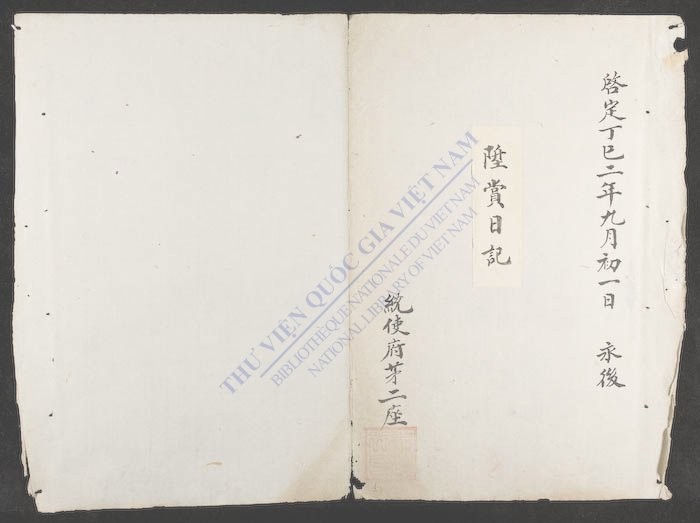 啓定丁巳二年九月初一日 永後
陞賞日記
統使府苐二座
THƯ VIỆN QUỐC GIA VIỆT NAM
BIBLIOTHÈQUE NATIONALE DU VIETNAM
NATIONAL LIBRARY OF VIETNAM